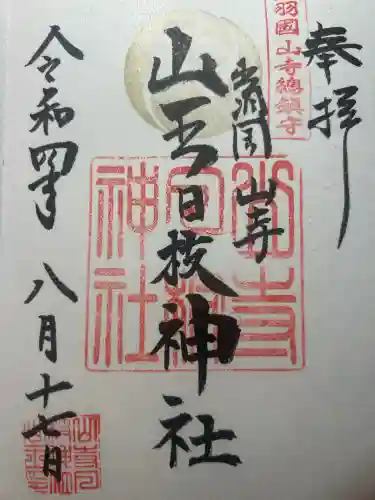 奉拝
羽國山寺總鎮守
出羽国 山寺
山王日枝神社
令和四年 八月十七日
山寺日枝神社